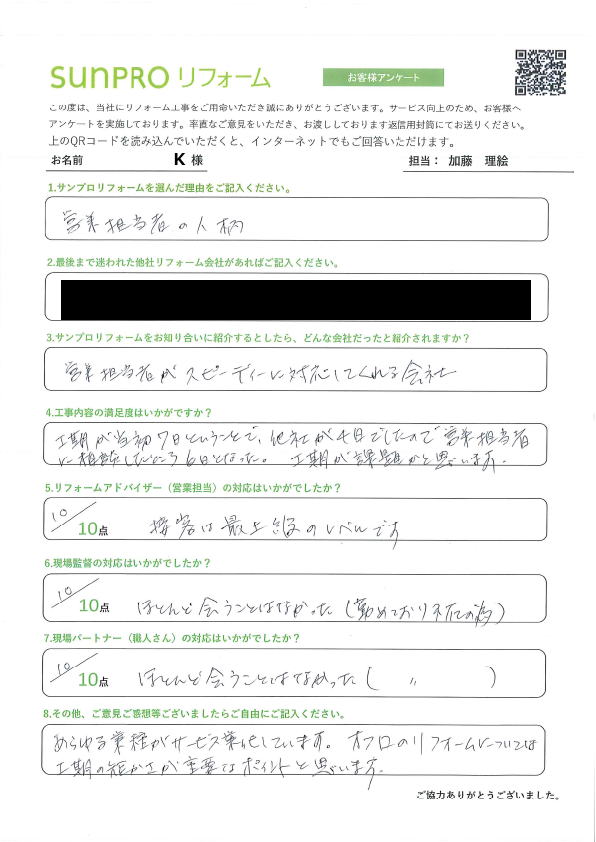 sunPRO リフォーム
お客様アンケート
この度は、当社にリフォーム工事をご用命いただき誠にありがとうございます。サービス向上のため、お客様へ
アンケートを実施しております。率直なご意見をいただき、お渡ししております返信用封筒にてお送りください。
上のQRコードを読み込んでいただくと、インターネットでもご回答いただけます。
お名前 K 様 担当： 加藤 理絵
1.サンプロリフォームを選んだ理由をご記入ください。
営業担当者の人柄
2.最後まで迷われた他社リフォーム会社があればご記入ください。
3.サンプロリフォームをお知り合いに紹介するとしたら、どんな会社だったと紹介されますか？
営業担当者がスピーディーに対応してくれる会社
4.工事内容の満足度はいかがですか？
工期が当初7日ということで、他社が4日でしたので営業担当者
に相談したところ6日となった。 工期が課題かと思います。
5.リフォームアドバイザー（営業担当）の対応はいかがでしたか？
10/10点 接客は最上級のレベルです
6.現場監督の対応はいかがでしたか？
10/10点 ほとんど会うことはなかった（勤めており不在の為）
7.現場パートナー（職人さん）の対応はいかがでしたか？
10/10点 ほとんど会うことはなかった（ 〃 ）
8.その他、ご意見ご感想等ございましたらご自由にご記入ください。
あらゆる業種がサービス業化しています。オフロのリフォームについては
工期の短かさが重要なポイントと思います。
ご協力ありがとうございました。